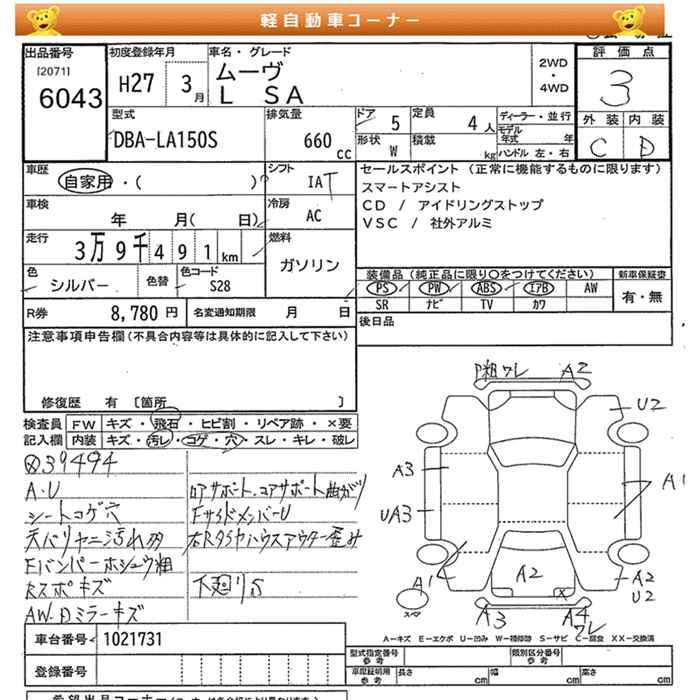 軽自動車コーナー
出品番号
[2071]
6043
初度登録年月
H27 3月
車名・グレード
ムーヴ
L SA
2WD
・
4WD
評価点
3
外装 内装
C D
型式
DBA-LA150S
排気量
660 CC
ドア 5
定員 4人
形状 W
積載 kg
ディーラー・並行
モデル年式 年
ハンドル 左・右
車歴
自家用・( )
シフト
IAT
車検
年 月( 日)
冷房
AC
走行
3万9千491km
燃料
ガソリン
色
シルバー
色替
色コード
S28
セールスポイント (正常に機能するものに限ります)
スマートアシスト
CD / アイドリングストップ
VSC / 社外アルミ
装備品(純正品に限り○をつけてください)
新車保証書
PS PW ABS エアB AW
SR ナビ TV カワ
有・無
R券 8,780円
名変通知期限 月 日
後日品
注意事項申告欄(不具合内容等は具体的に記入して下さい)
修復歴 有 [箇所 ]
検査員記入欄
FW キズ・飛石・ヒビ割・リペア跡・×要
内装 キズ・汚レ・コゲ・穴・スレ・キレ・破レ
39494
A・U
シートコゲ穴
天バリヤニ汚れ
Fバンパーホシュウ粗
Rスポキズ
AW・Dミラーキズ
コアサポート曲がり
FサイドメンバーU
右Rタイヤハウスアウター歪み
下廻りS
P粗ワレ A2
U2
A3
UA3
A1
A1
A2
A2
U2
A3
A4
ワレ
スペア
A—キズ E—エクボ U—凹み W—補修跡 S—サビ C—腐食 XX—交換済
車台番号 1021731
登録番号
型式指定番号
参考
類別区分番号
参考
車庫証明用
参考
長さ cm 幅 cm 高さ cm